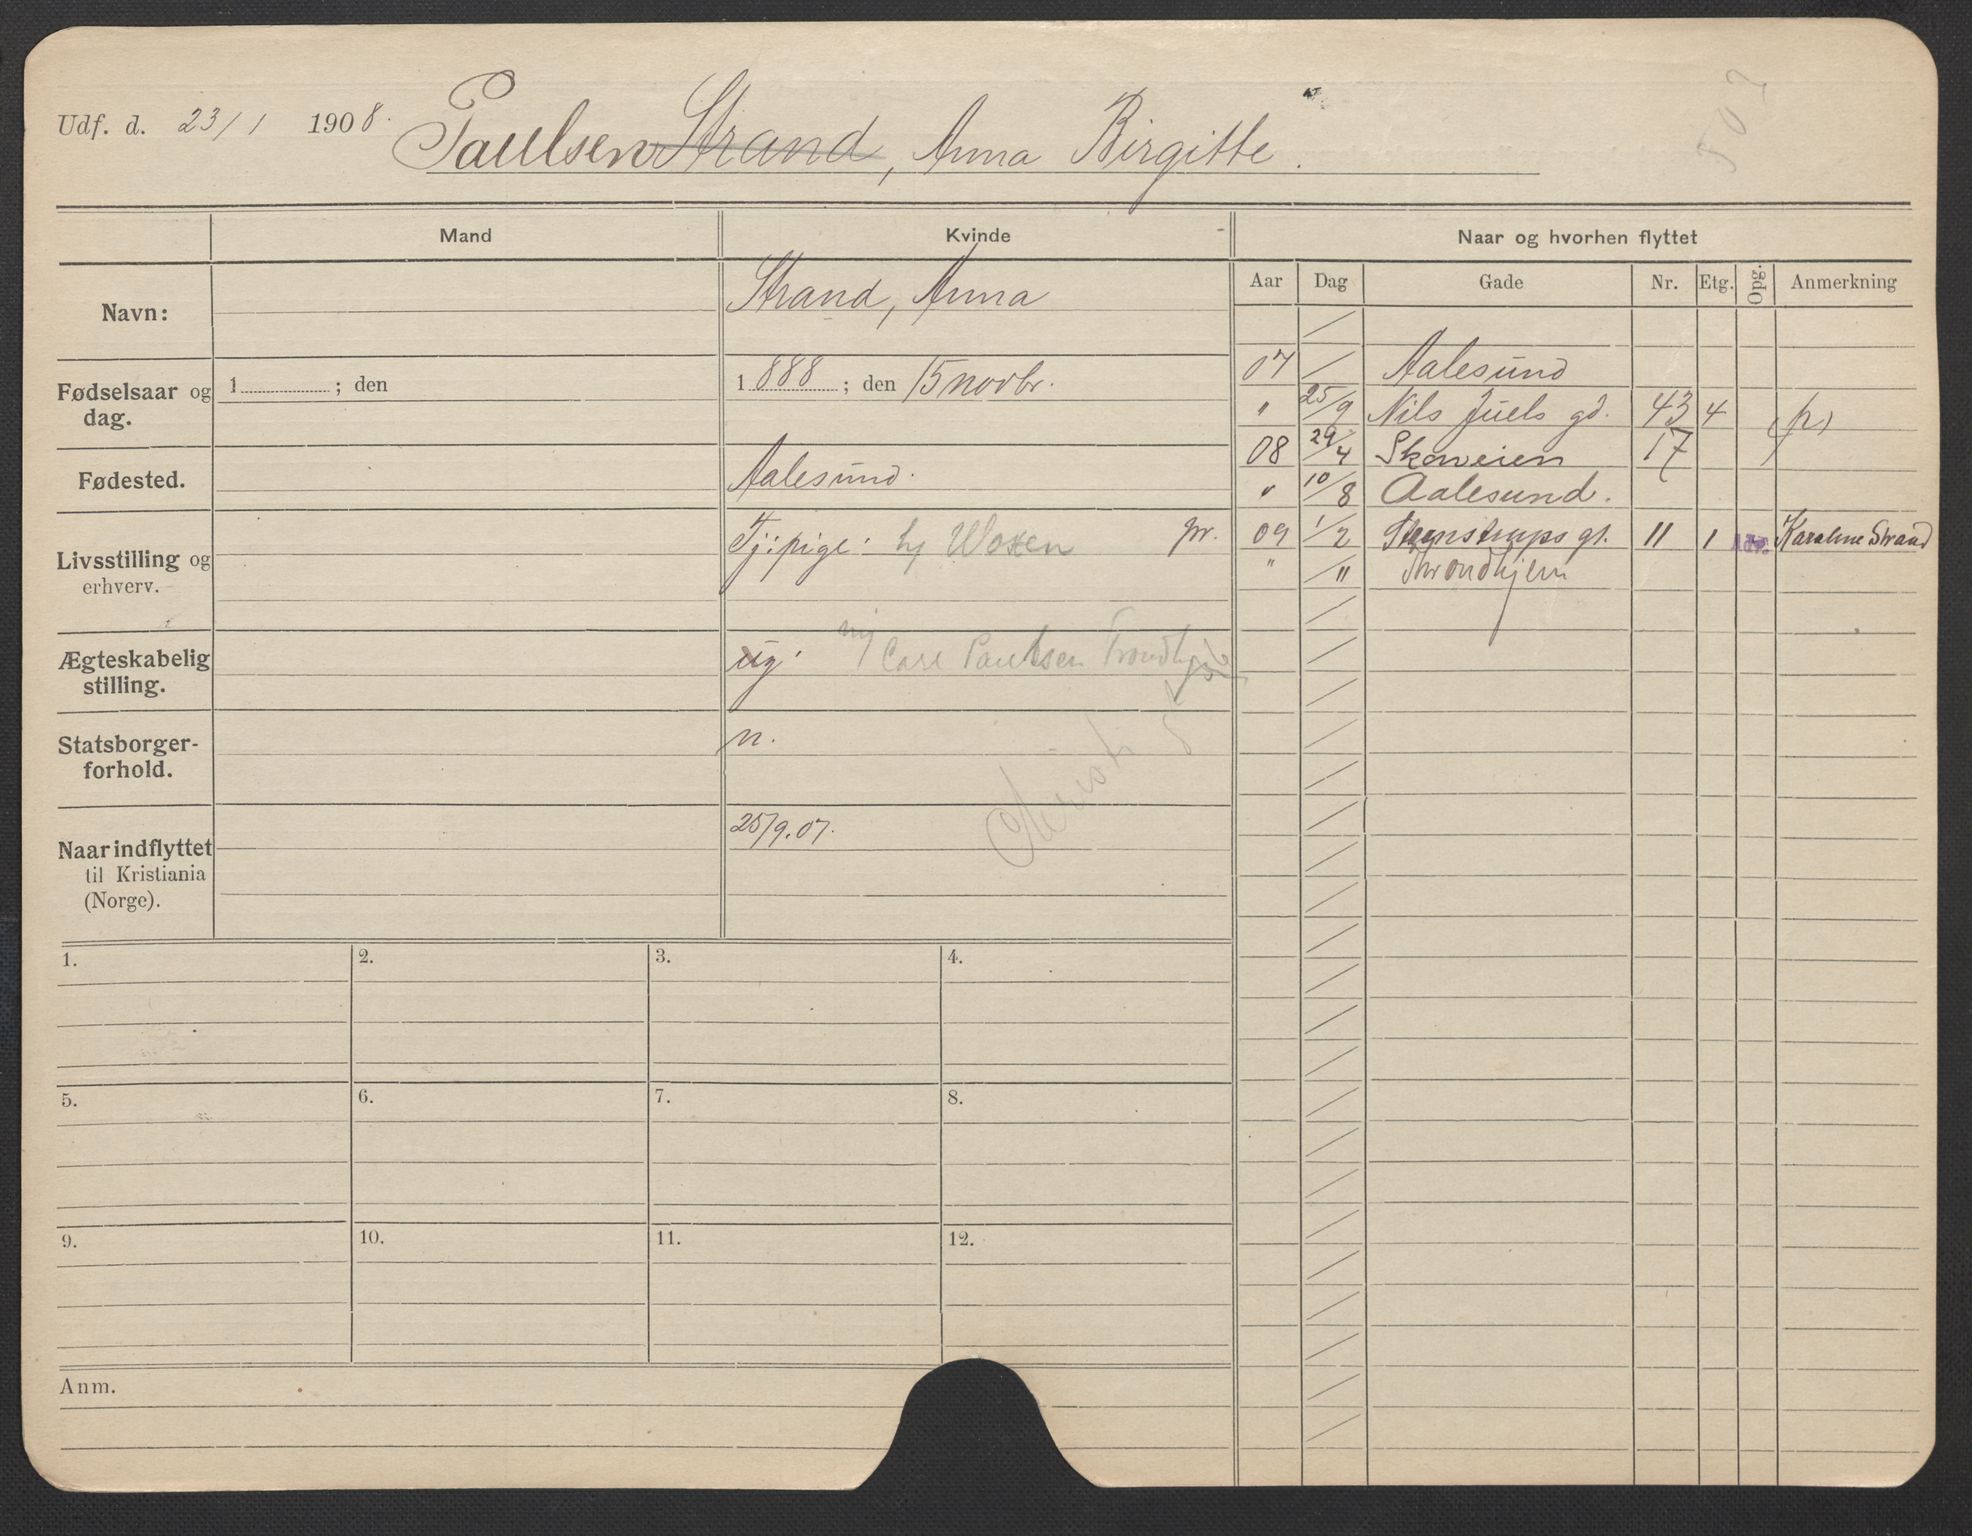 Udf. d. 23/1 1908. Paulsen Strand, Anna Birgitte.
Mand Kvinde Naar og hvorhen flyttet
Aar Dag Gade Nr. Etg. Opg. Anmerkning
Navn: Strand, Anna
Fødselsaar og dag. 1 ; den 1888 ; den 15 novbr.
Fødested. Aalesund.
Livsstilling og erhverv. Tj: pige: hj Woxen pr.
Ægteskabelig stilling. ug. Carl Paulsen Trondhjem
Statsborgerforhold. n.
Christi
Naar indflyttet til Kristiania (Norge). 25/9.07.
07 / Aalesund
" 25/9 Nils Juels gd. 43 4 (p)
08 29/4 Skovveien 17
" 10/8 Aalesund.
09 1/2 Stenstrups gt. 11 1 Adr. Karoline Strand
" /" Throndhjem
1. 2. 3. 4.
5. 6. 7. 8.
9. 10. 11. 12.
Anm.